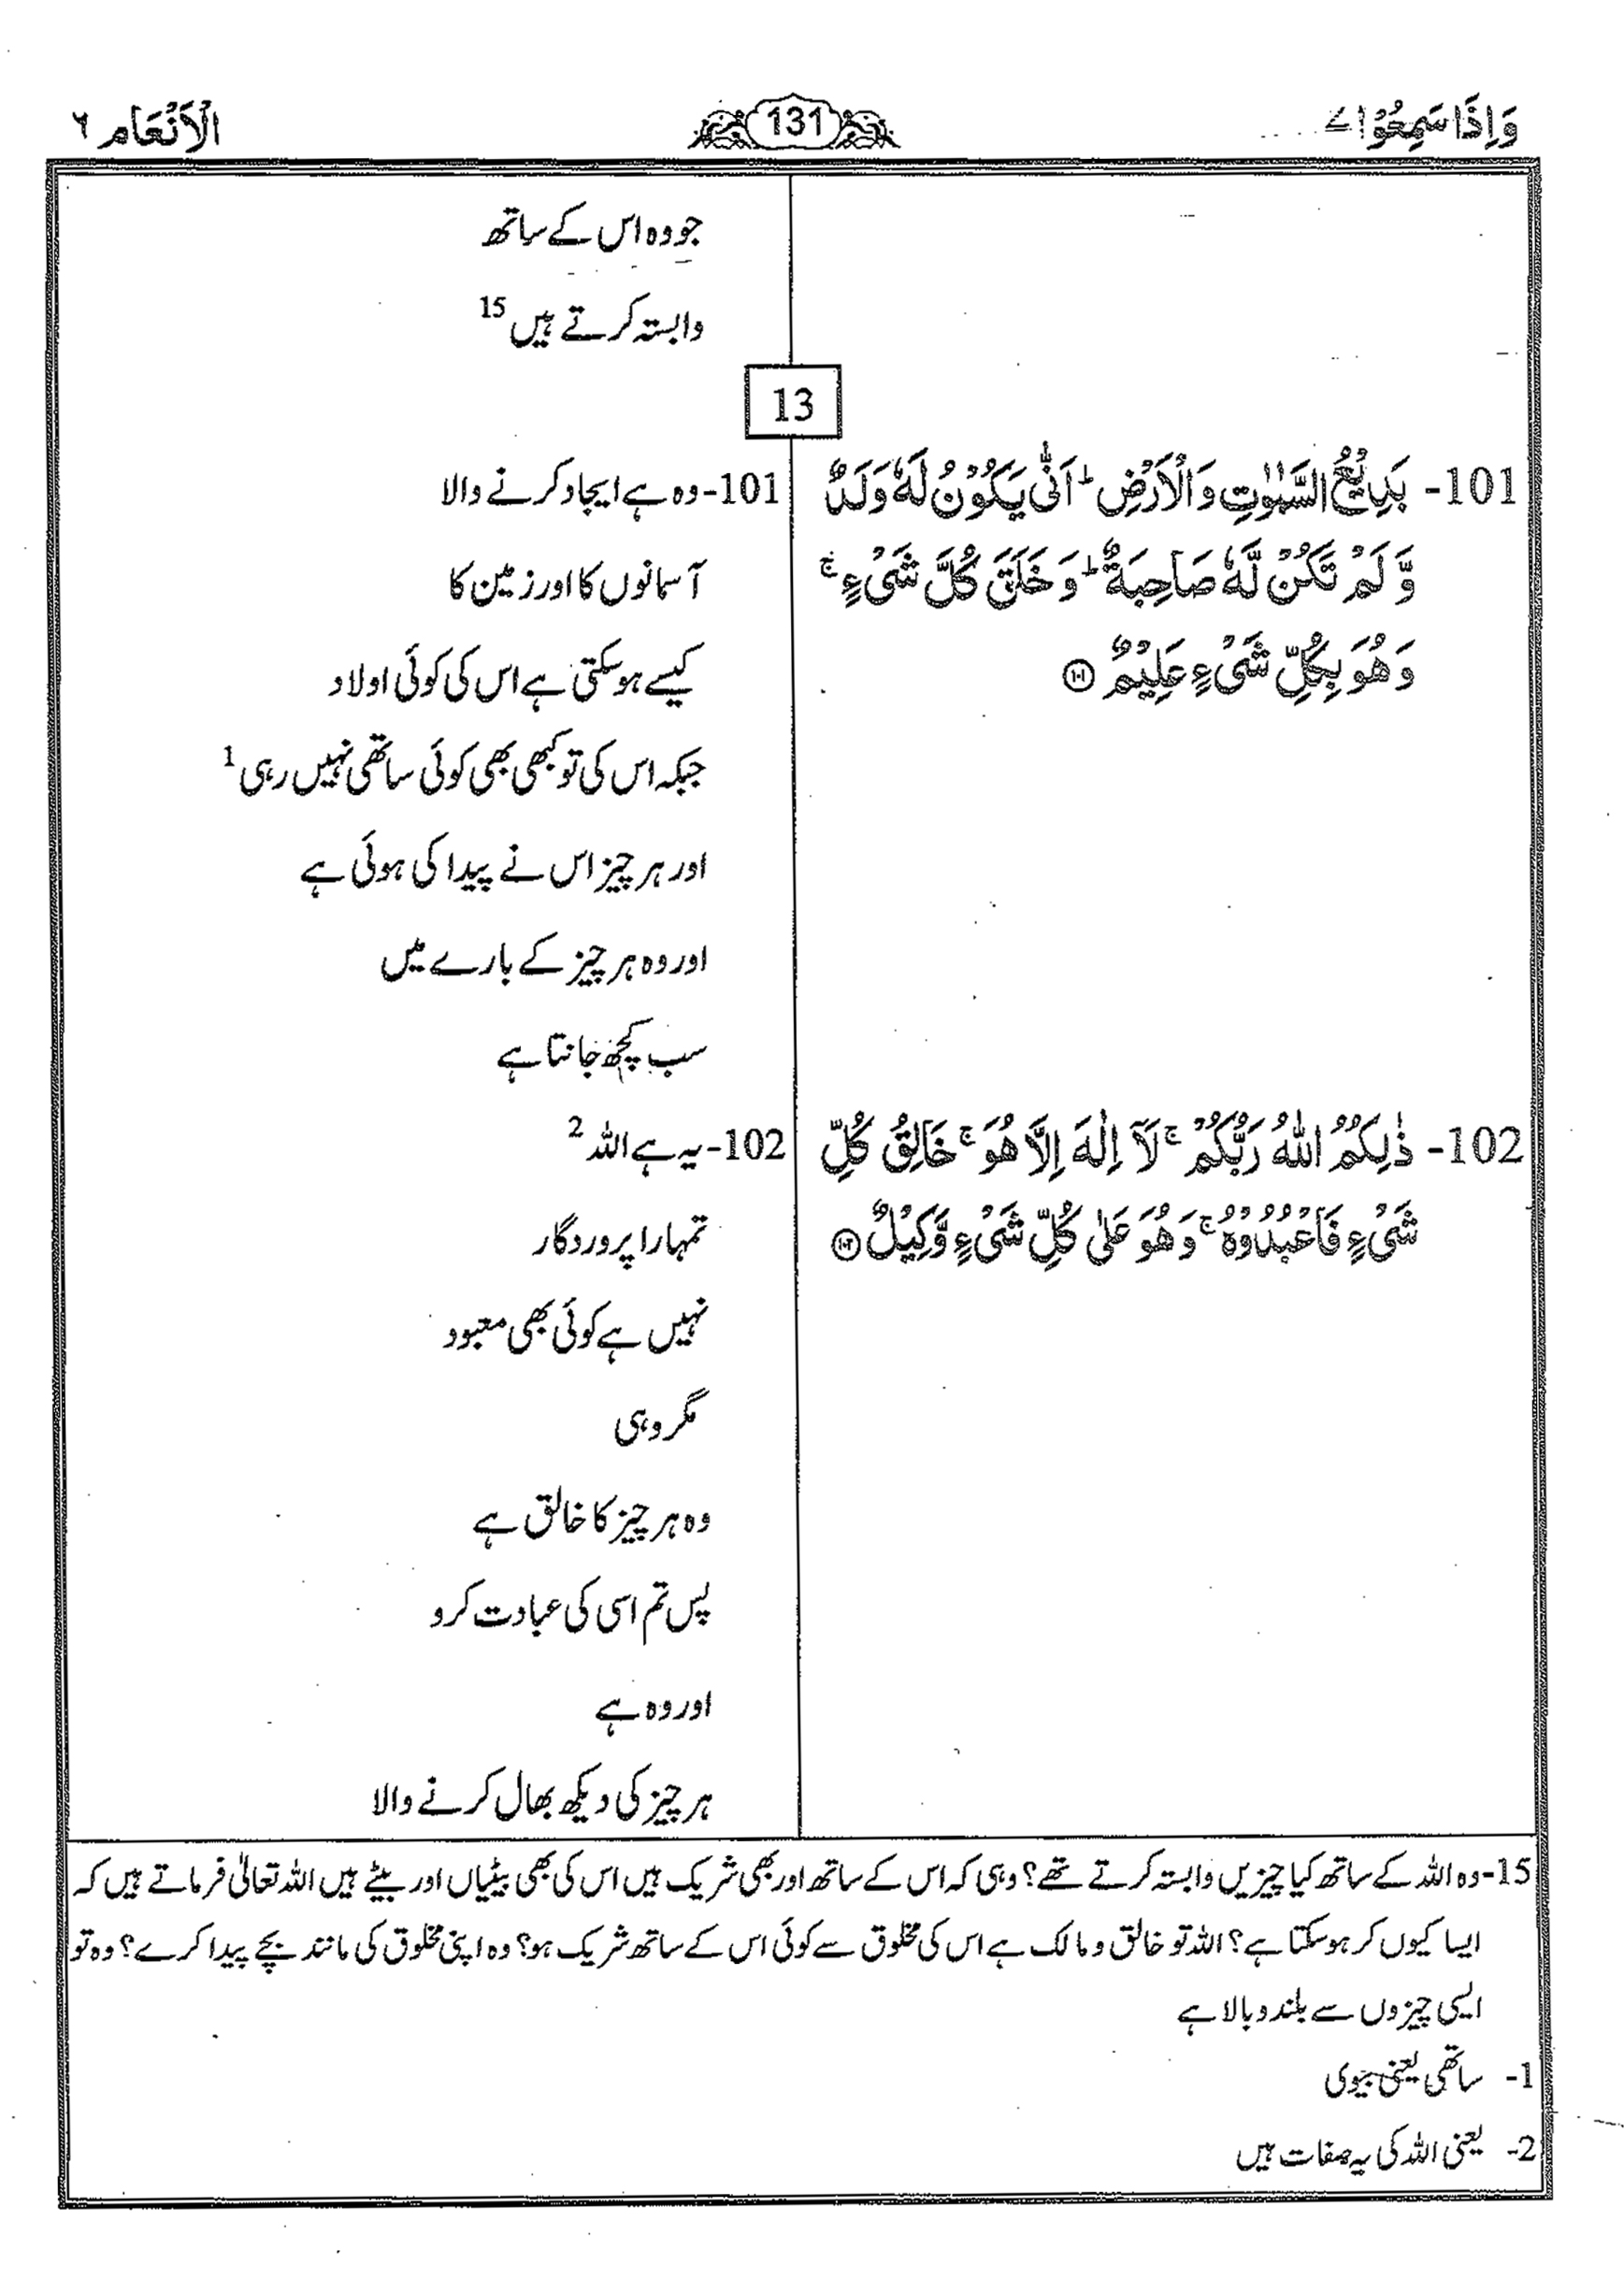 وَاِذَا سَمِعُوْا ٧
131
الْاَنْعَام ٦
جو وہ اس کے ساتھ
وابستہ کرتے ہیں 15
13
101- بَدِيْعُ السَّمٰوٰتِ وَالْاَرْضِ ؕ اَنّٰى يَكُوْنُ لَهٗ وَلَدٌ
وَّ لَمْ تَكُنْ لَّهٗ صَاحِبَةٌ ؕ وَ خَلَقَ كُلَّ شَىْءٍ ۚ
وَ هُوَ بِكُلِّ شَىْءٍ عَلِيْمٌ ﴿۱۰۱﴾
101- وہ ہے ایجاد کرنے والا
آسمانوں کا اور زمین کا
کیسے ہو سکتی ہے اس کی کوئی اولاد
جبکہ اس کی تو کبھی بھی کوئی ساتھی نہیں رہی 1
اور ہر چیز اس نے پیدا کی ہوئی ہے
اور وہ ہر چیز کے بارے میں
سب کچھ جانتا ہے
102- ذٰلِكُمُ اللّٰهُ رَبُّكُمْ ۚ لَاۤ اِلٰهَ اِلَّا هُوَ ۚ خَالِقُ كُلِّ
شَىْءٍ فَاعْبُدُوْهُ ۚ وَ هُوَ عَلٰى كُلِّ شَىْءٍ وَّكِيْلٌ ﴿۱۰۲﴾
102- یہ ہے اللہ 2
تمہارا پروردگار
نہیں ہے کوئی بھی معبود
مگر وہی
وہ ہر چیز کا خالق ہے
پس تم اسی کی عبادت کرو
اور وہ ہے
ہر چیز کی دیکھ بھال کرنے والا
15- وہ اللہ کے ساتھ کیا چیزیں وابستہ کرتے تھے؟ وہی کہ اس کے ساتھ اور بھی شریک ہیں اس کی بھی بیٹیاں اور بیٹے ہیں اللہ تعالیٰ فرماتے ہیں کہ
ایسا کیوں کر ہو سکتا ہے؟ اللہ تو خالق و مالک ہے اس کی مخلوق سے کوئی اس کے ساتھ شریک ہو؟ وہ اپنی مخلوق کی مانند بچے پیدا کرے؟ وہ تو
ایسی چیزوں سے بلند و بالا ہے
1- ساتھی یعنی بیوی
2- یعنی اللہ کی یہ صفات ہیں